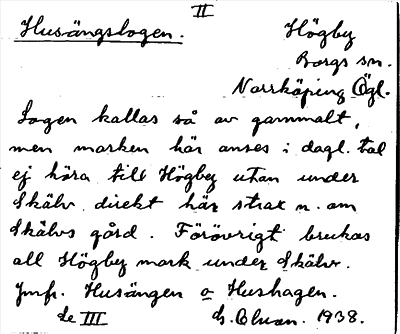 II
Husängslogen. Högby
Borgs sn.
Norrköping Ögl.
Logen kallas så av gammalt,
men marken här anses i dagl. tal
ej höra till Högby utan under
Skälv direkt här strax n. om
Skälvs gård. Förövrigt brukas
all Högby mark under Skälv.
Jmfr. Husängen o Hushagen.
se III 1938.